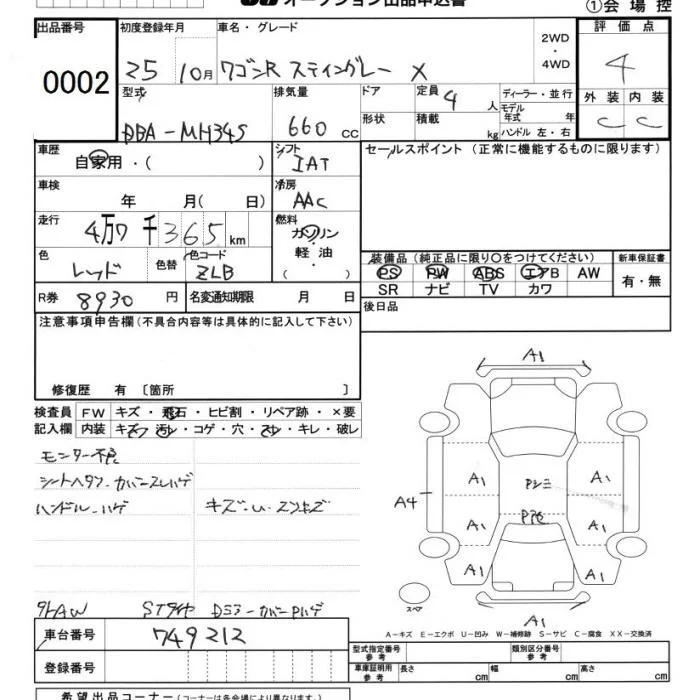 オークション出品申込書
①会場控
出品番号
0002
初度登録年月
25 10月
車名・グレード
ワゴンR スティングレー X
2WD
・
4WD
評価点
4
外装 内装
C C
型式
DBA-MH34S
排気量
660 cc
ドア
形状
定員 4 人
積載 kg
ディーラー・並行
モデル年式 年
ハンドル 左・右
車歴
自家用・( )
シフト
IAT
セールスポイント (正常に機能するものに限ります)
車検
年 月( 日)
冷房
AAC
走行
4万7千365km
燃料
ガソリン
軽油
( )
色
レッド
色替
色コード
ZLB
装備品 (純正品に限り○をつけてください)
PS PW ABS エアB AW
SR ナビ TV カワ
新車保証書
有・無
R券 8930円
名変通知期限 月 日
後日品
注意事項申告欄(不具合内容等は具体的に記入して下さい)
修復歴 有 〔箇所 〕
検査員記入欄
FW キズ・飛石・ヒビ割・リペア跡・×要
内装 キズ・汚レ・コゲ・穴・スレ・キレ・破レ
モニター不良
ハンドル ハゲ
キズ・U・スリキズ
A1
A1 A1
A4
A1 A1
A1 A1
A1
スペア
車台番号
749212
登録番号
A-キズ E-エクボ U-凹み W-補修跡 S-サビ C-腐食 XX-交換済
型式指定番号 参考
類別区分番号 参考
車庫証明用 参考
長さ cm
幅 cm
高さ cm
希望出品コーナー(コーナーは各会場により異なります。)